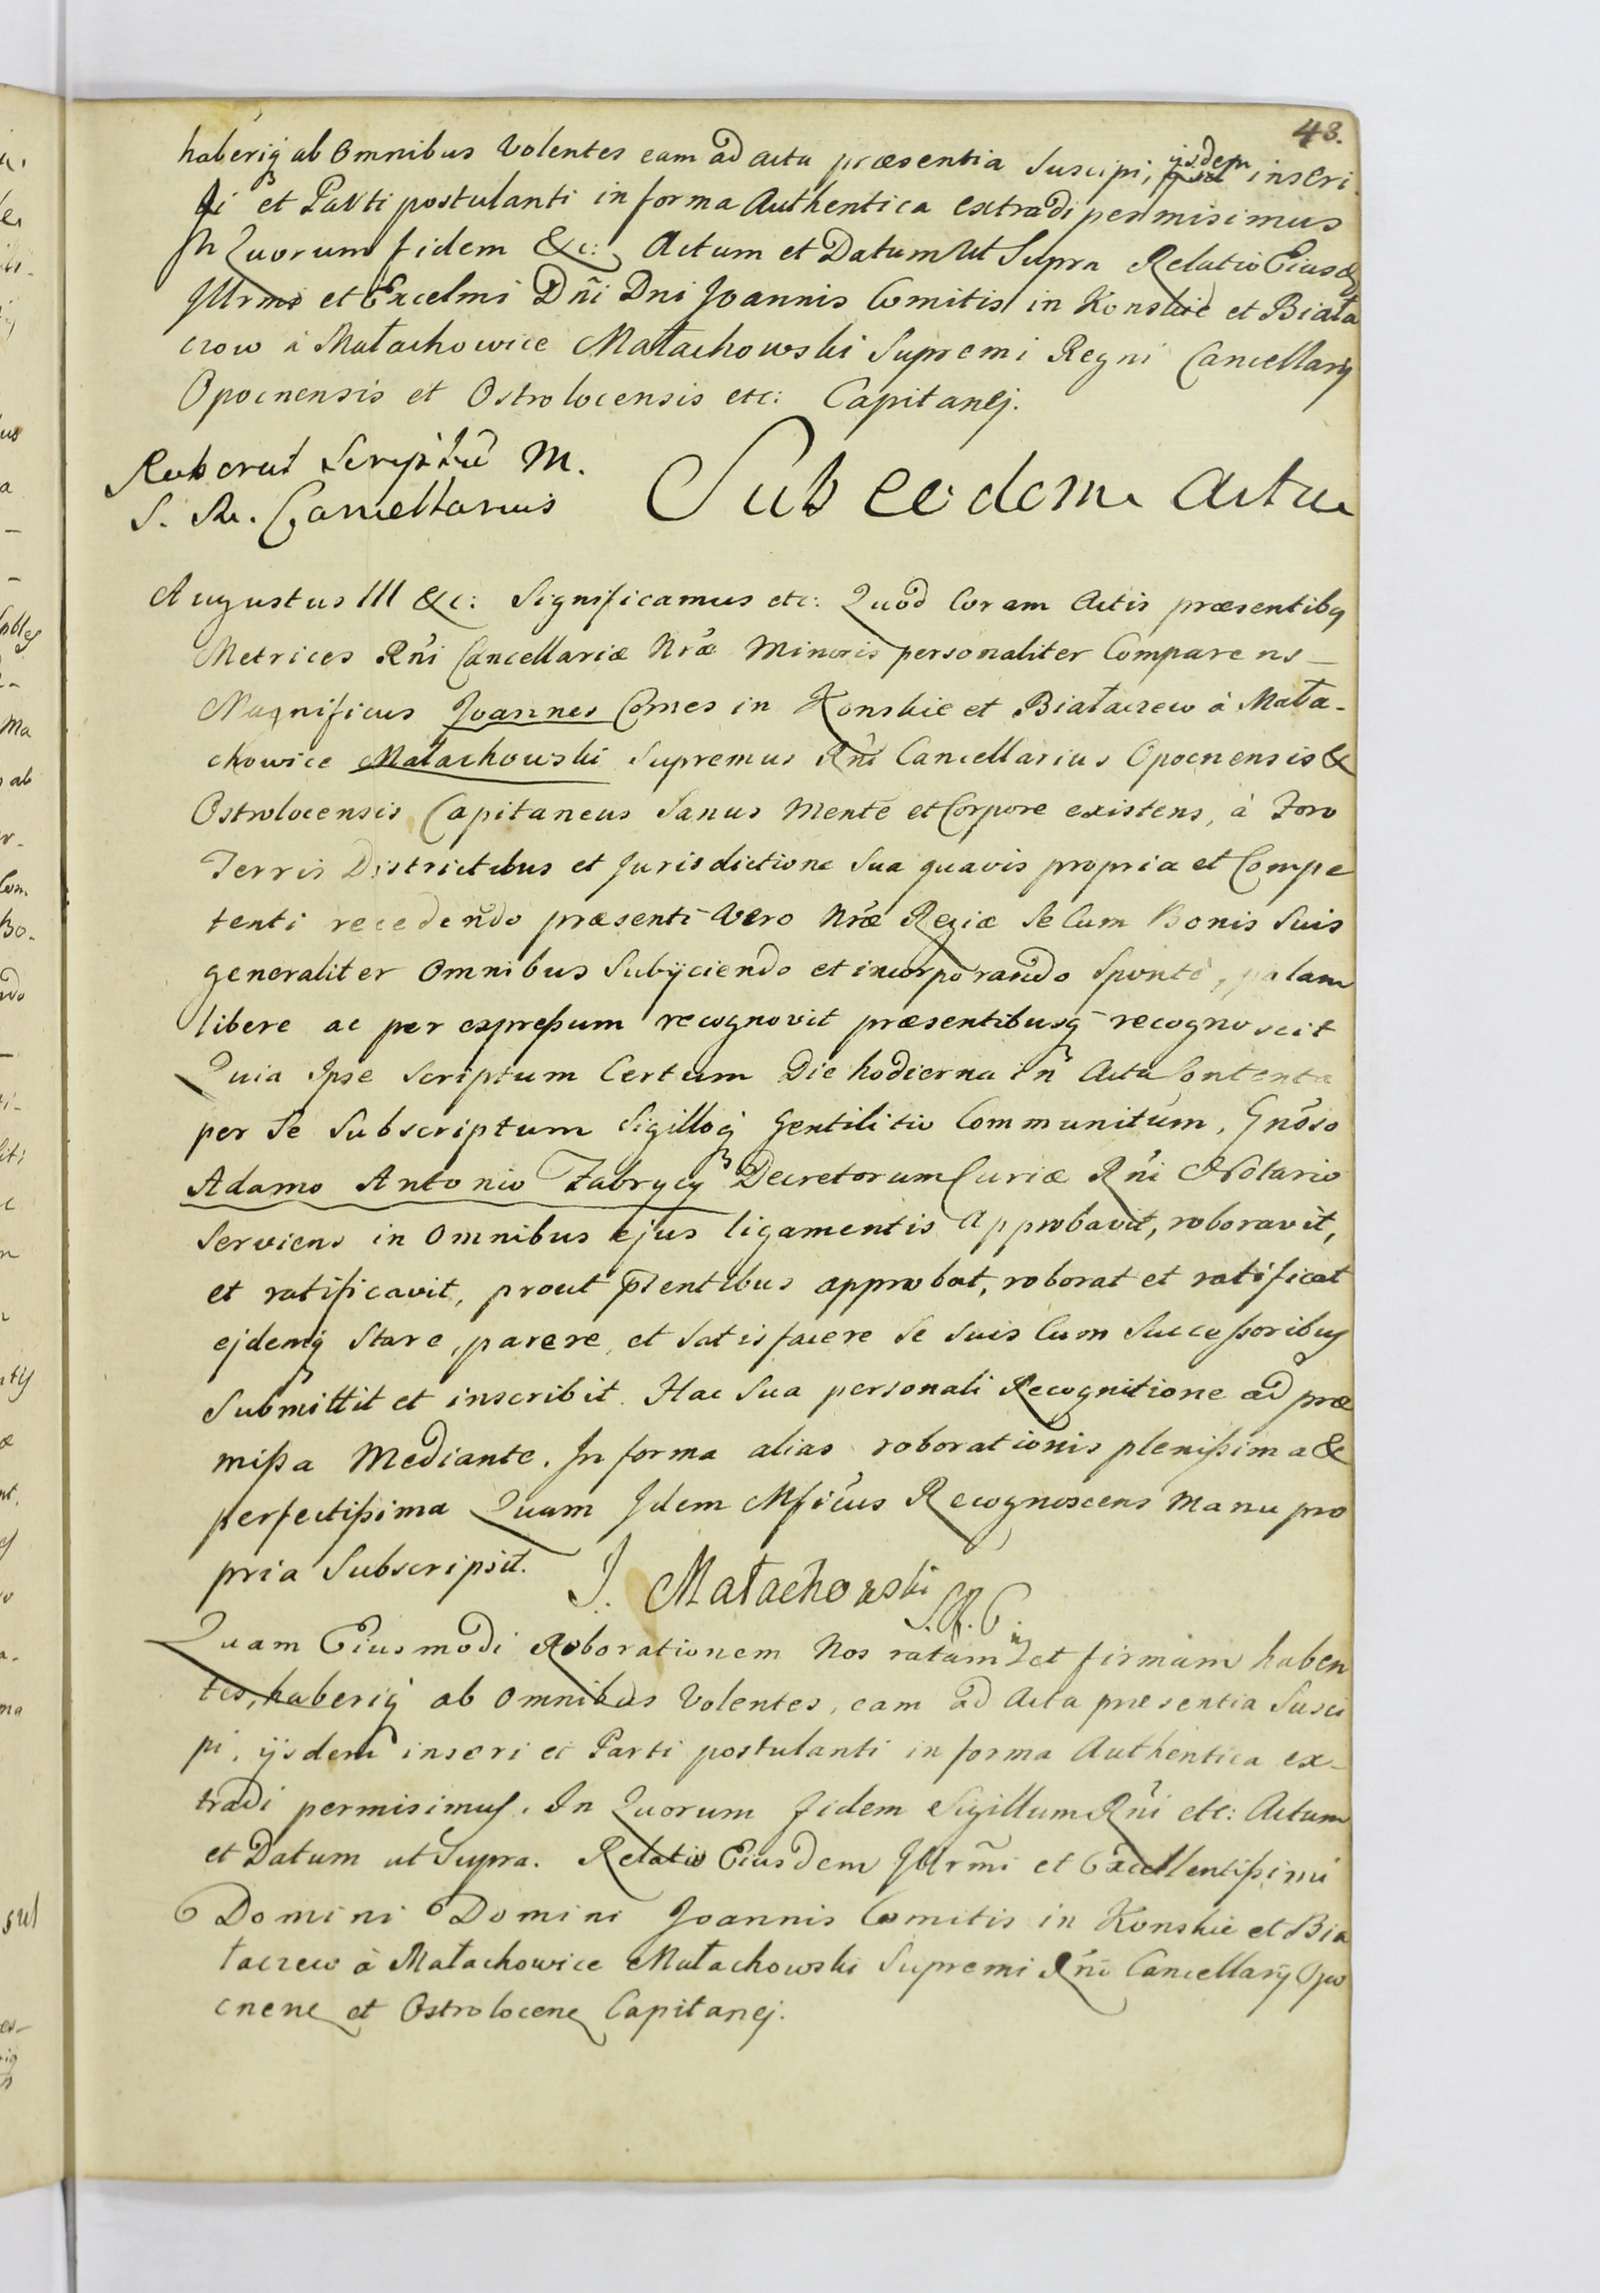 48.
haberiq ab Omnibus Volentes eam ad acta præsentia Suscipi, ijsdem inseri
et Parti postulanti in forma Authentica extradi permisimus
In Quorum fidem &c: Actum et Datum Ut Supra Relatio Eiusd
Jllrmi et Excelmi Dñi Dni Joannis Comitis in Konskie et Biała
crow à Małachowice Małachowski Supremi Regni Cancellarij
Opocnensis et Ostrolocensis etc: Capitanej.
Roborat Scriptū M.
S. R. Cancellarius
Sub eodem Actu
Augustus III &c: Significamus etc: Quod Coram Actis præsentibq
Metrices Rñi Cancellariæ Nræ Minoris personaliter Comparens
Magnificus Joannes Comes in Konskie et Białaczew à Mała-
chowice Małachowski Supremus Rñi Cancellarius Opocnensis &
Ostrolocensis Capitaneus Sanus Mente et Corpore existens, à Foro
Terris Districtibus et Jurisdictione Sua quavis propria et Compe
tenti recedendo præsenti Vero Nræ Regiæ Se Cum Bonis Suis
generaliter Omnibus Subijciendo et incorporando Sponte, palam
libere ac per expreßum recognovit præsentibusq recognoscit
Quia Ipse Scriptum Certum Die hodierna in Acta Contenta
per Se Subscriptum Sigilloq Gentilitio Communitum, Gnoso
Adamo Antonio Fabrycy Decretorum Curiæ Rñi Notario
Serviens in Omnibus ejus ligamentis Approbavit, roboravit,
et ratificavit, prout p̄sentibus approbat, roborat et ratificat
ejdemq Stare, parere, et Satisfacere Se Suis Cum Succeßoribq
Submittit et inscribit. Hac Sua personali Recognitione ad præ
mißa Mediante. In forma alias roborationis plenißima &
perfectißima Quam Jdem Mficus Recognoscens Manu pro
pria Subscripsit. J. Małachowski
S.R.C.
Quam Eiusmodi Roborationem Nos ratam et firmam haben
tes, haberiq ab Omnibus Volentes, eam ad Acta præsentia Susci
pi, ijsdem inseri et Parti postulanti in forma Authentica ex-
tradi permisimus. In Quorum fidem Sigillum Rñi etc: Actum
et Datum ut Supra. Relatio Eiusdem Jllrmi et Excellentißimi
Domini Domini Joannis Comitis in Konskie et Bia
łaczew à Małachowice Małachowski Supremi Rñi Cancellarij Opo
cnens et Ostrolocens Capitanej.